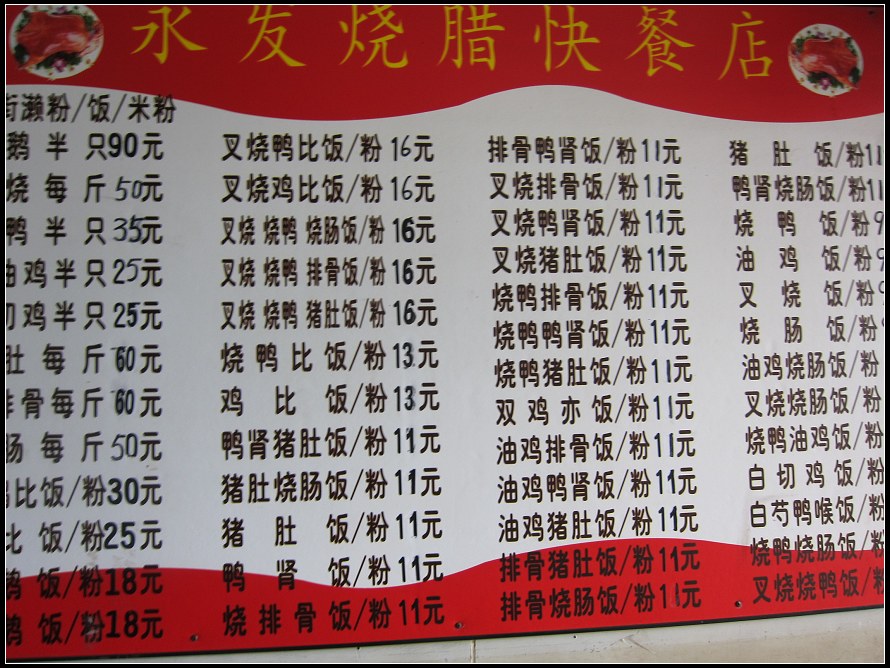 永发烧腊快餐店
濑粉/饭/米粉
鹅半只90元
烧每斤50元
鸭半只35元
油鸡半只25元
切鸡半只25元
肚每斤60元
排骨每斤60元
肠每斤50元
比饭/粉30元
比饭/粉25元
鹅饭/粉18元
鹅饭/粉18元
叉烧鸭比饭/粉16元
叉烧鸡比饭/粉16元
叉烧 烧鸭 烧肠饭/粉16元
叉烧 烧鸭 排骨饭/粉16元
叉烧 烧鸭 猪肚饭/粉16元
烧鸭比饭/粉13元
鸡比饭/粉13元
鸭肾猪肚饭/粉11元
猪肚烧肠饭/粉11元
猪肚饭/粉11元
鸭肾饭/粉11元
烧排骨饭/粉11元
排骨鸭肾饭/粉11元
叉烧排骨饭/粉11元
叉烧鸭肾饭/粉11元
叉烧猪肚饭/粉11元
烧鸭排骨饭/粉11元
烧鸭鸭肾饭/粉11元
烧鸭猪肚饭/粉11元
双鸡亦饭/粉11元
油鸡排骨饭/粉11元
油鸡鸭肾饭/粉11元
油鸡猪肚饭/粉11元
排骨猪肚饭/粉11元
排骨烧肠饭/粉11元
猪肚饭/粉11
鸭肾烧肠饭/粉11
烧鸭饭/粉9
油鸡饭/粉9
叉烧饭/粉9
烧肠饭/粉
油鸡烧肠饭/粉
叉烧烧肠饭/粉
烧鸭油鸡饭/粉
白切鸡饭/粉
白芍鸭喉饭/粉
烧鸭烧肠饭/粉
叉烧烧鸭饭/粉